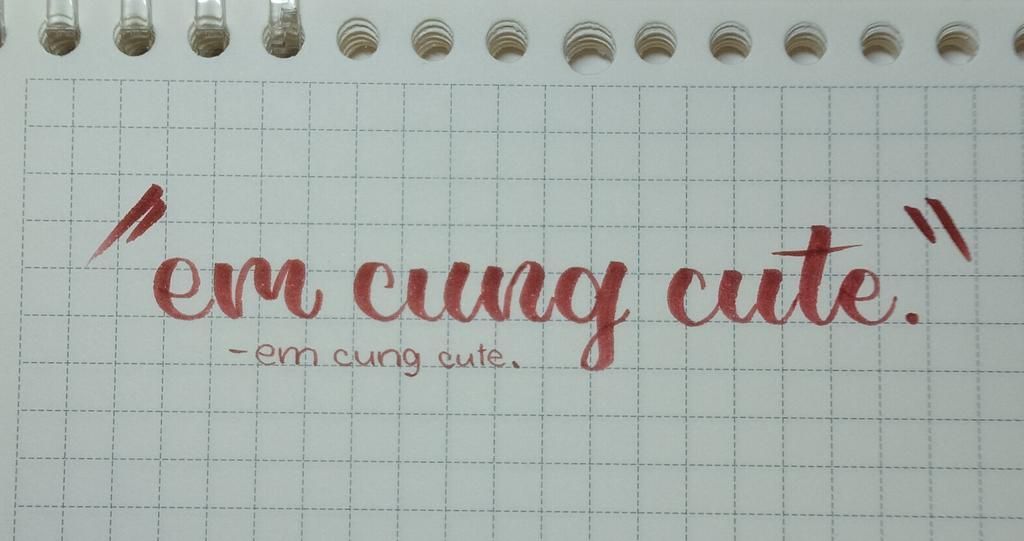 "em cung cute."
-em cung cute.